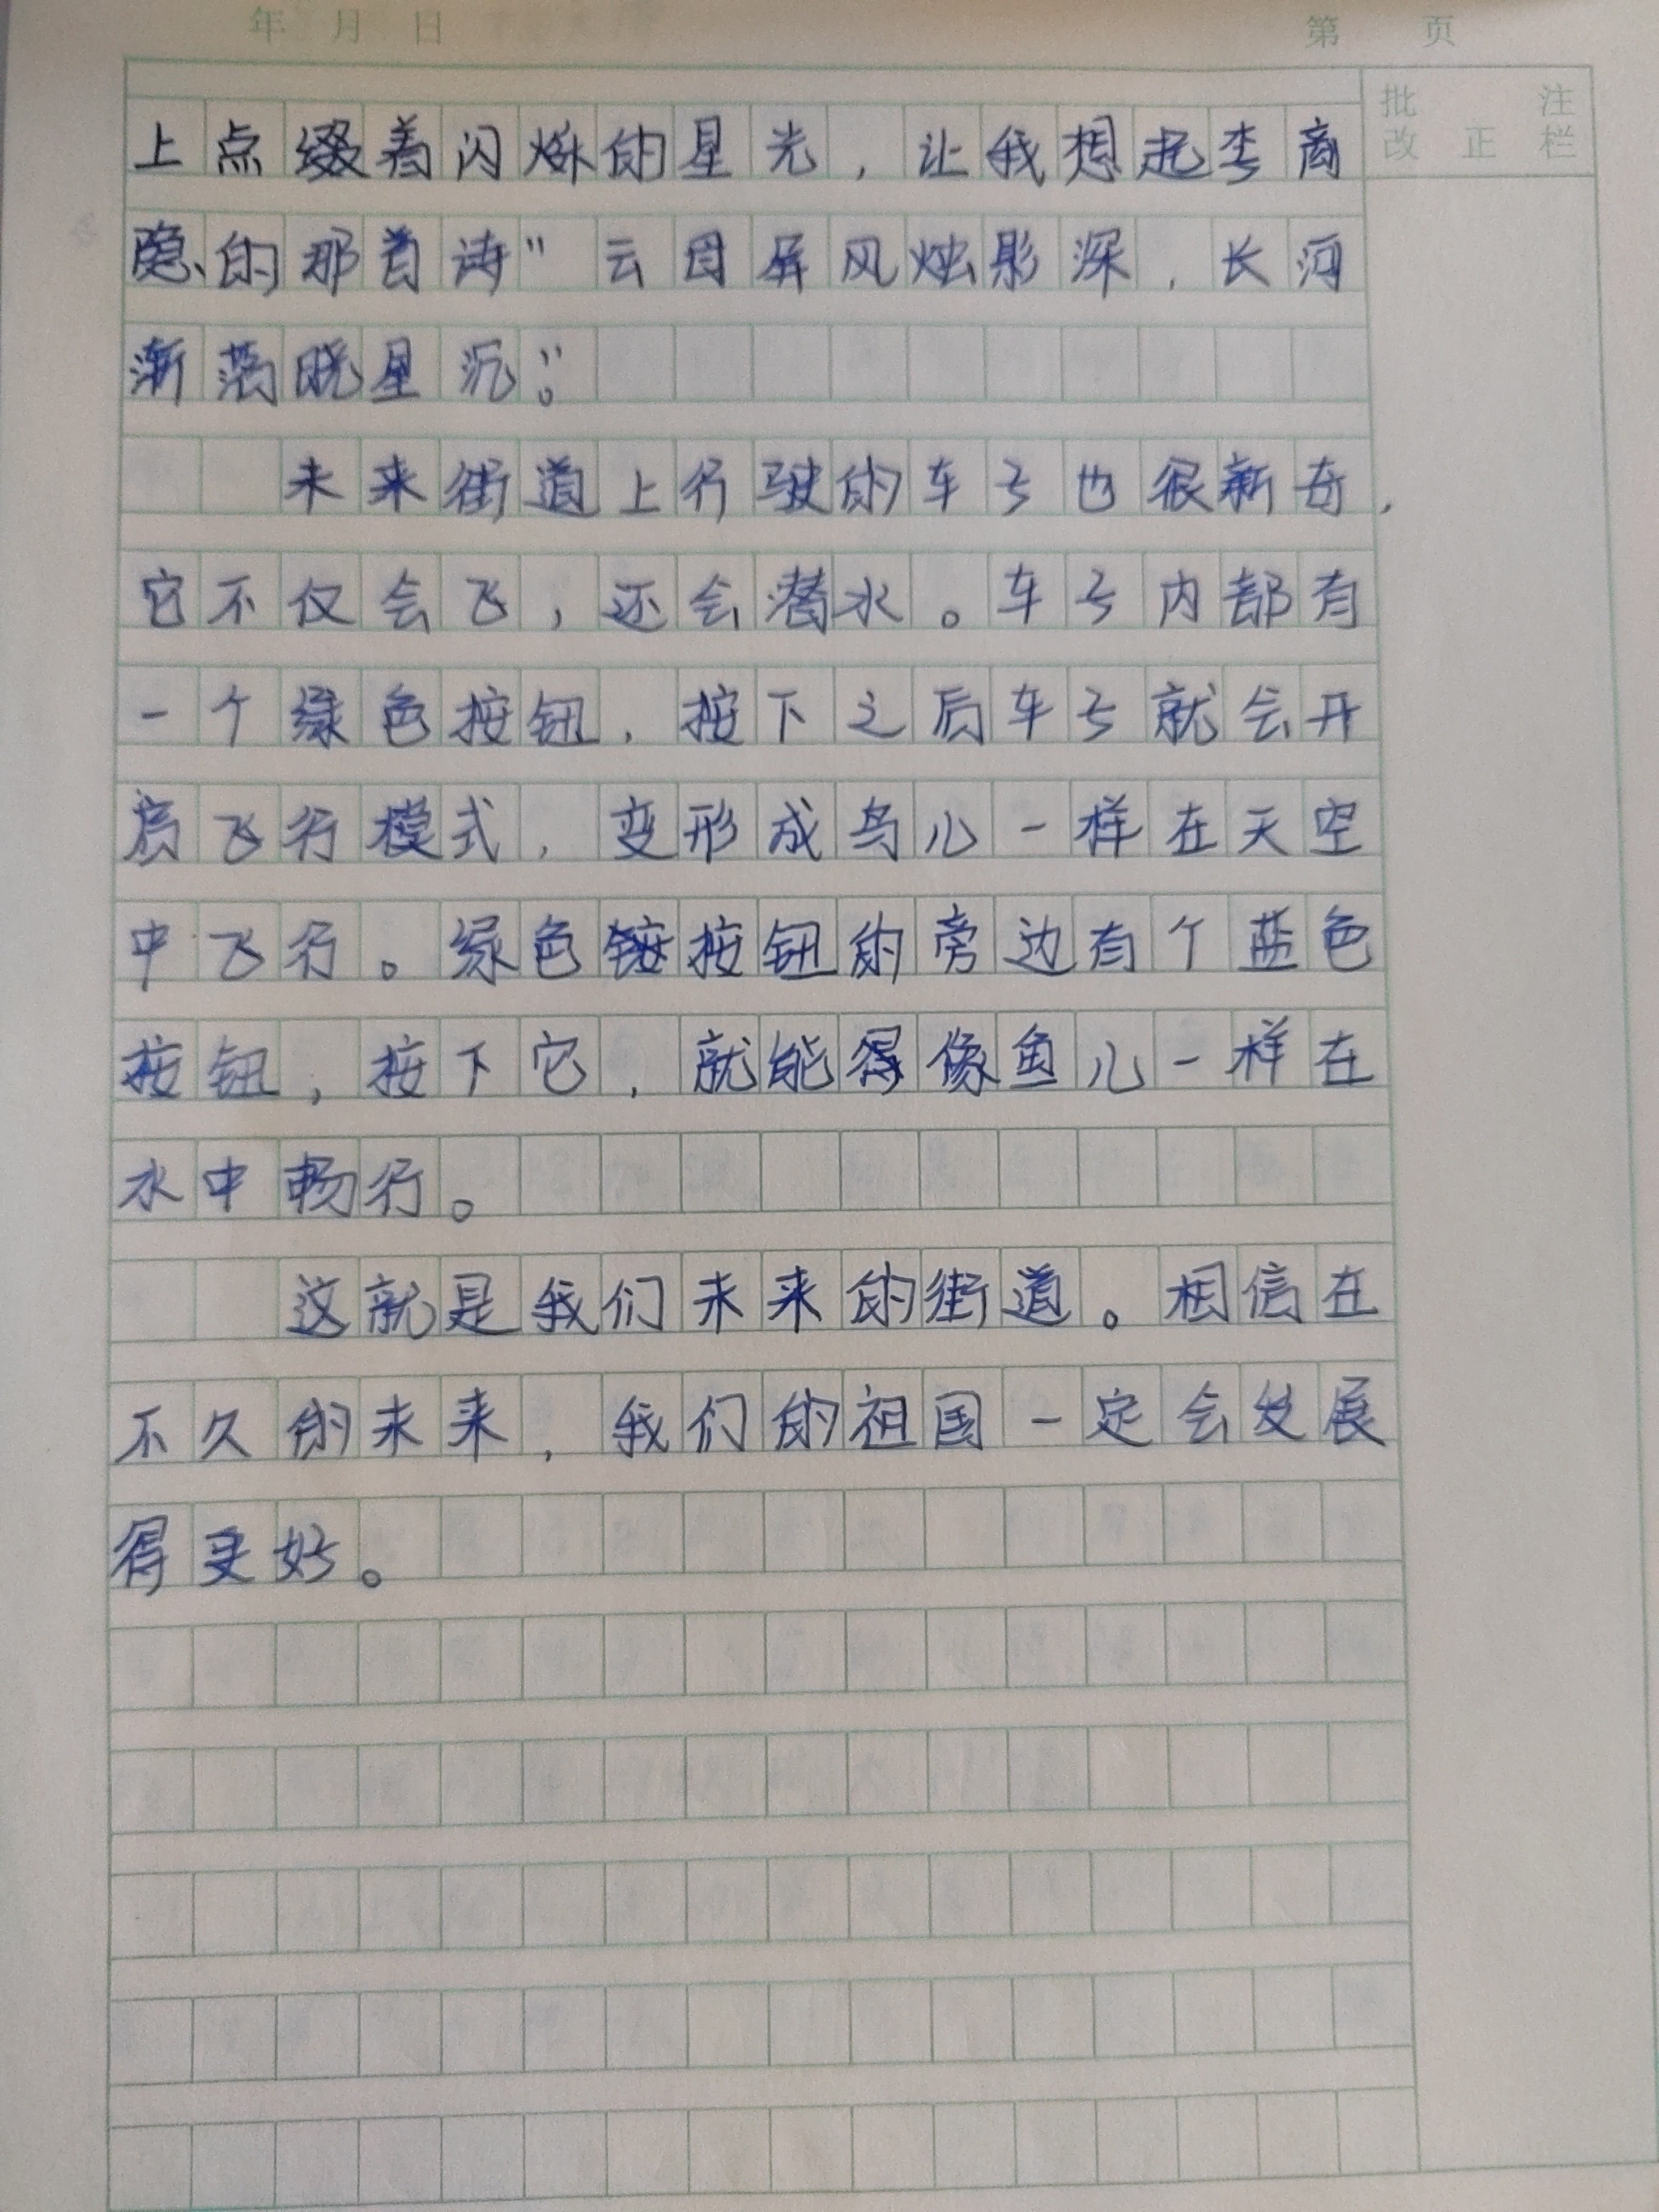 年 月 日 第 页
批 注
改 正 栏
上点缀着闪烁的星光，让我想起李商
隐的那首诗"云母屏风烛影深，长河
渐落晓星沉。"
未来街道上行驶的车子也很新奇，
它不仅会飞，还会潜水。车子内部有
一个绿色按钮，按下之后车子就会开
启飞行模式，变形成鸟儿一样在天空
中飞行。绿色按钮的旁边有个蓝色
按钮，按下它，就能像鱼儿一样在
水中畅行。
这就是我们未来的街道。相信在
不久的未来，我们的祖国一定会发展
得更好。